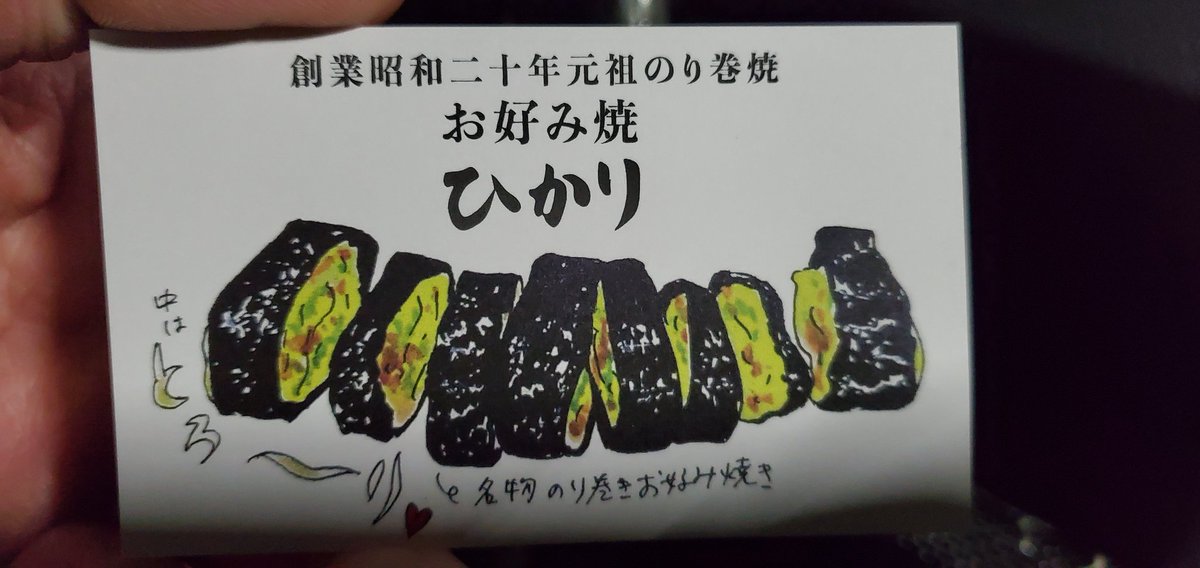 創業昭和二十年元祖のり巻焼
お好み焼
ひかり
中は
とろ〜り♥と
名物のり巻きお好み焼き